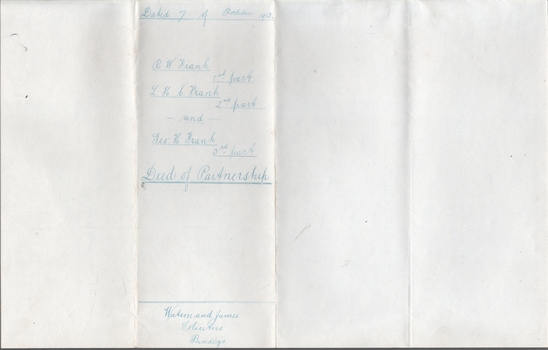 Dated 7 of October
O W Frank
1st part
L R C Frank
2nd part
- and -
Geo. H Frank
3rd part
Deed of Partnership
Watson and James
Solicitors
Bendigo